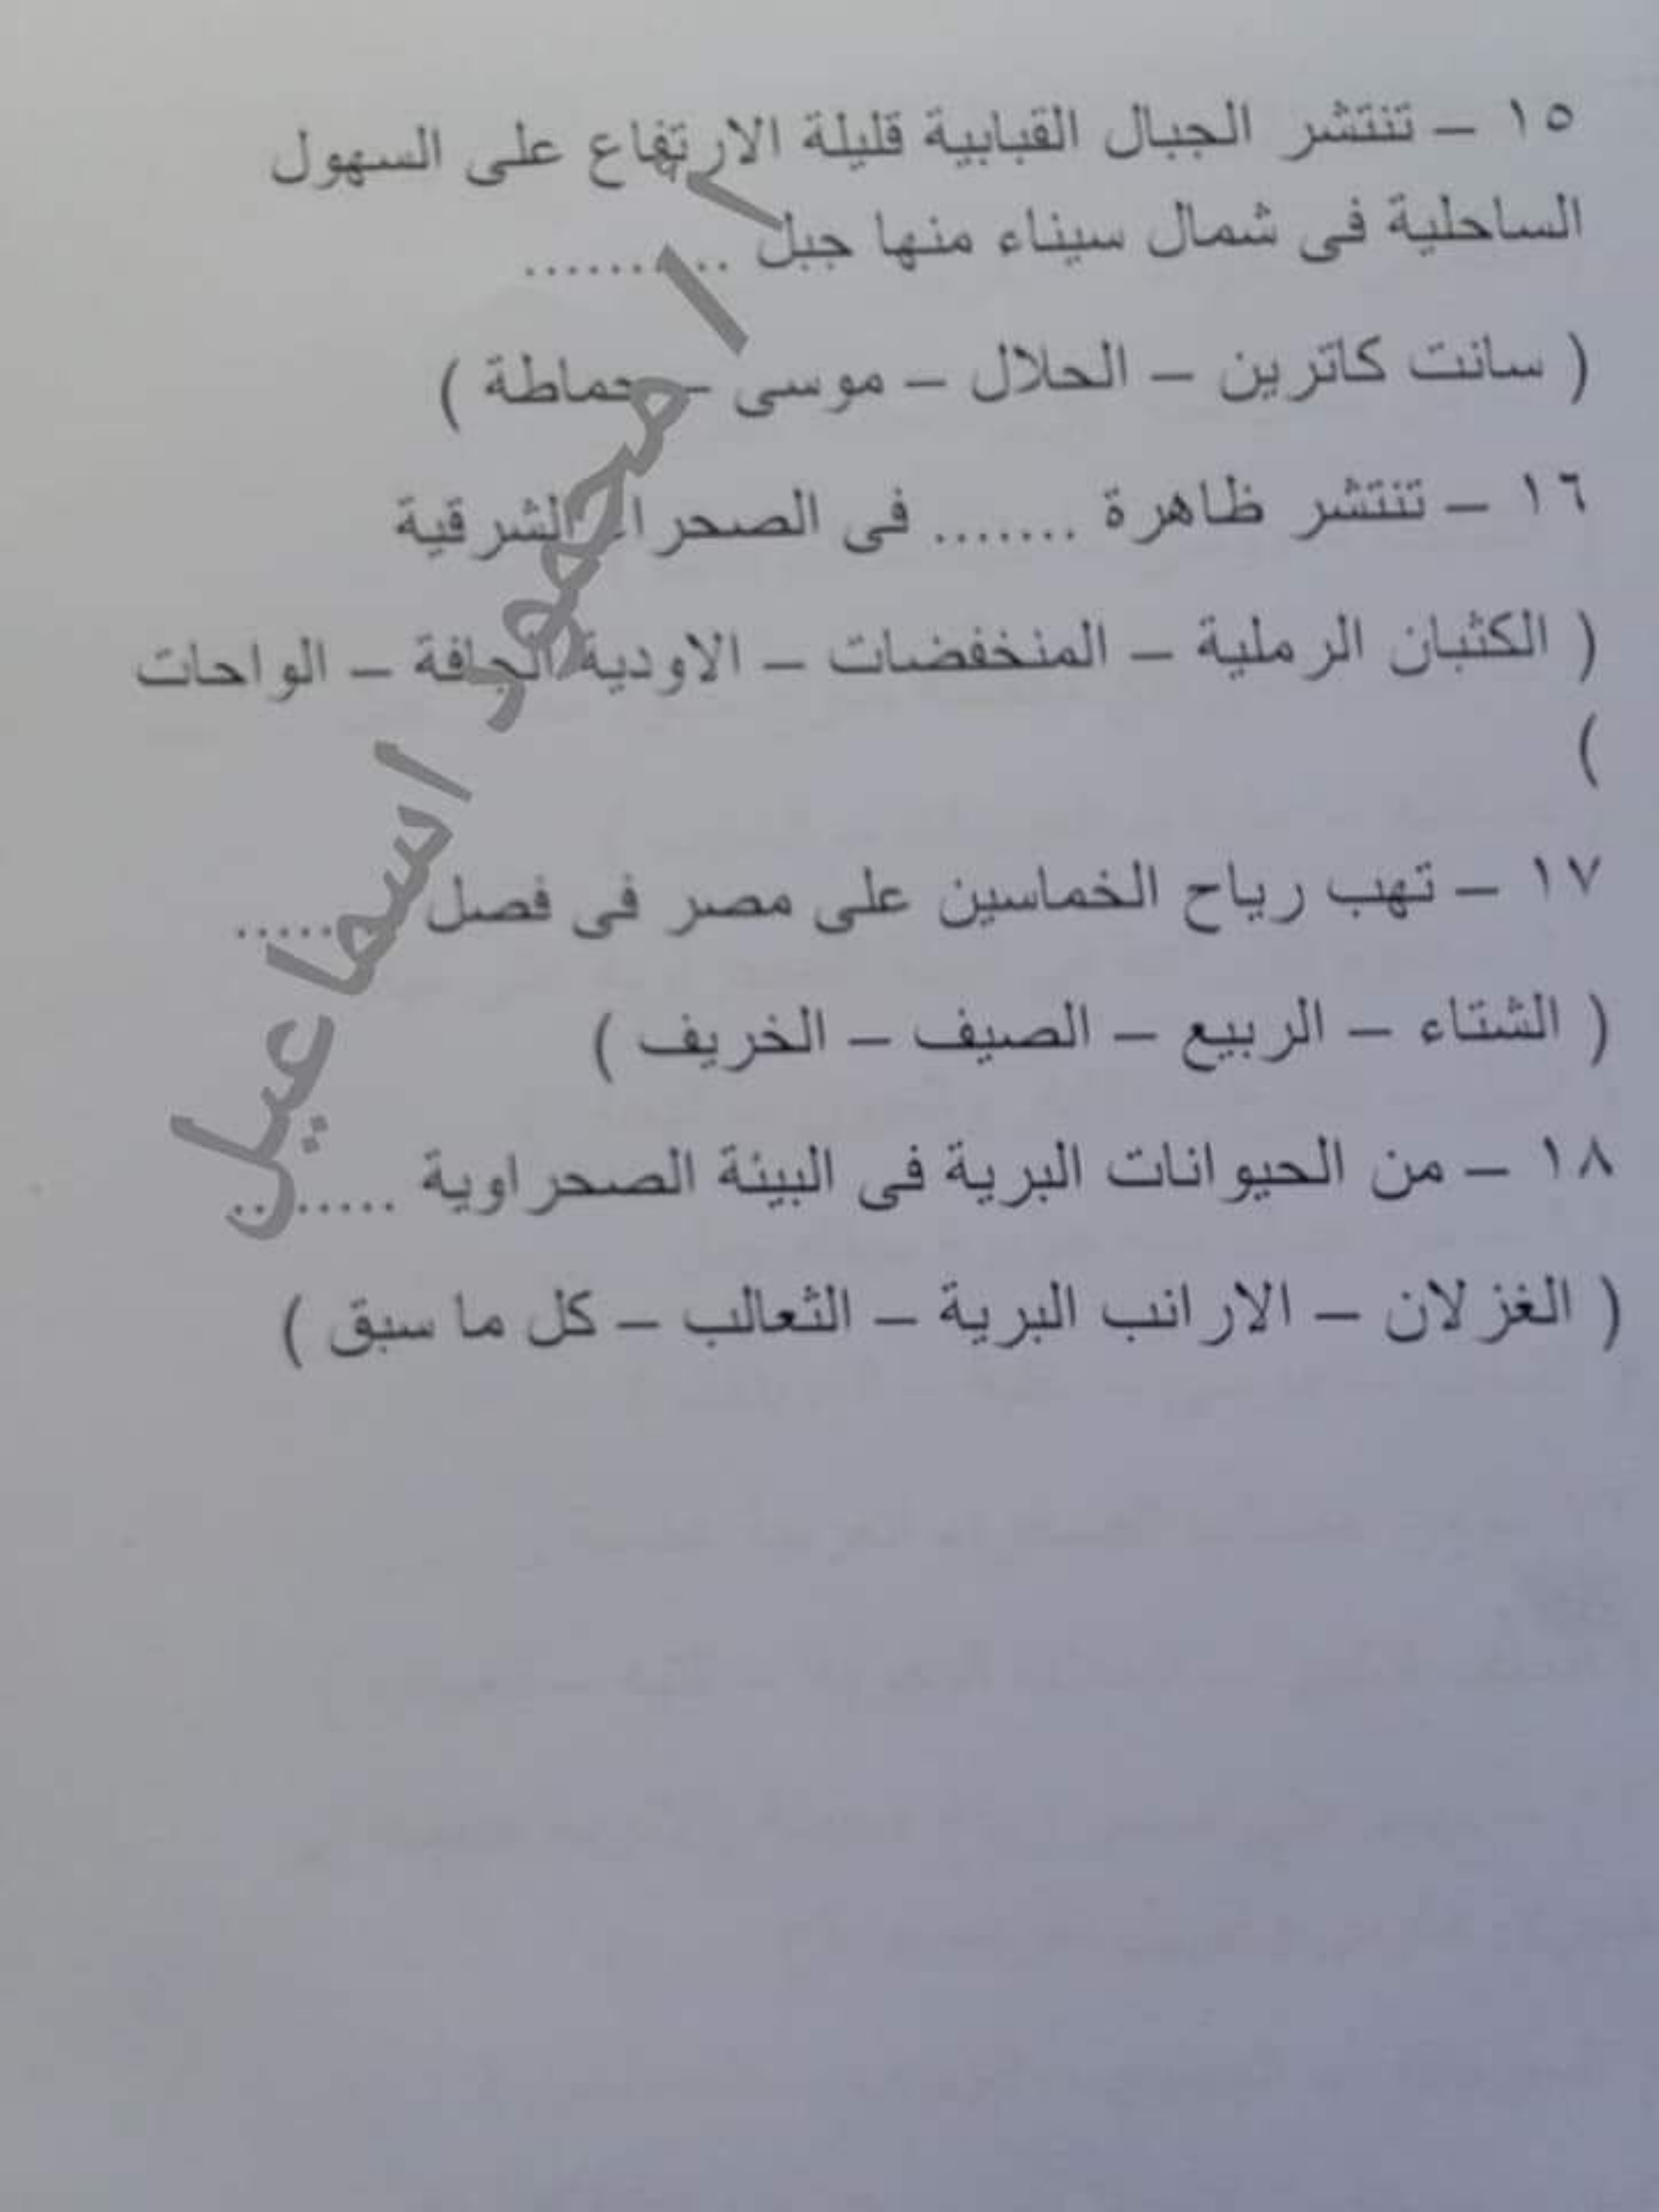 ١٥ – تنتشر الجبال القبابية قليلة الارتفاع على السهول
الساحلية فى شمال سيناء منها جبل ..........
( سانت كاترين – الحلال – موسى – حماطة )
١٦ – تنتشر ظاهرة ....... فى الصحراء الشرقية
( الكثبان الرملية – المنخفضات – الاودية الجافة – الواحات
)
١٧ – تهب رياح الخماسين على مصر فى فصل .......
( الشتاء – الربيع – الصيف – الخريف )
١٨ – من الحيوانات البرية فى البيئة الصحراوية ........
( الغزلان – الارانب البرية – الثعالب – كل ما سبق )
أ / محمود اسماعيل